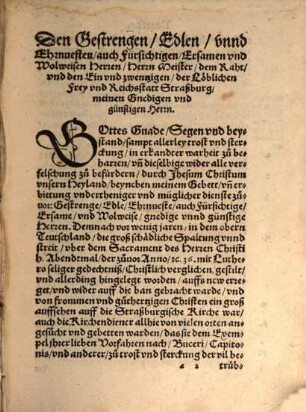 Den Gestrengen / Edlen / vnnd
Ehrnuesten / auch Fürsichtigen / Ersamen vnd
Wolweisen Herren / Herrn Meister / dem Raht /
vnd den Ein vnd zwenzigen / der Löblichen
Frey vnd Reichsstatt Straßburg /
meinen Gnedigen vnd
günstigen Herrn.
GOttes Gnade / Segen vnd bey-
stand / sampt allerley trost vnd ster-
ckung / in erkandter warheit zů be-
harren / vñ dieselbige wider alle ver-
felschung zů befürdern / durch Jhesum Christum
vnsern Heyland / beynebend meinem Gebett / vñ er-
bietung vndertheniger vnd müglicher dienst zů-
uor: Gestrenge / Edle / Ehrnueste / auch Fürsichtige /
Ersame / vnd Wolweise / gnedige vnnd günstige
Herren. Demnach vor wenig jaren / in dem obern
Teutschland / die groß schädliche Spaltung vnnd
streit / vber dem Sacrament des Herren Christi
h. Abendtmal / der zůuor Anno / ꝛc. 36. mit Luthe-
ro seliger gedechtniß / Christlich verglichen / gestilt /
vnd allerding hingelegt worden / auffs new erre-
get / vnd wider auff die ban gebracht warde / vnd
von frommen vnd gůthertzigen Christen ein groß
auffsehen auff die Straßburgische Kirche war /
auch die Kirchendiener allhie von vielen orten an-
gesůcht vnd gebetten warden / das sie dem Exem-
pel jhrer lieben Vorfahren nach / Buceri / Capito-
nis / vnd anderer / zů trost vnd sterckung der vil be-
a 2 trüb-